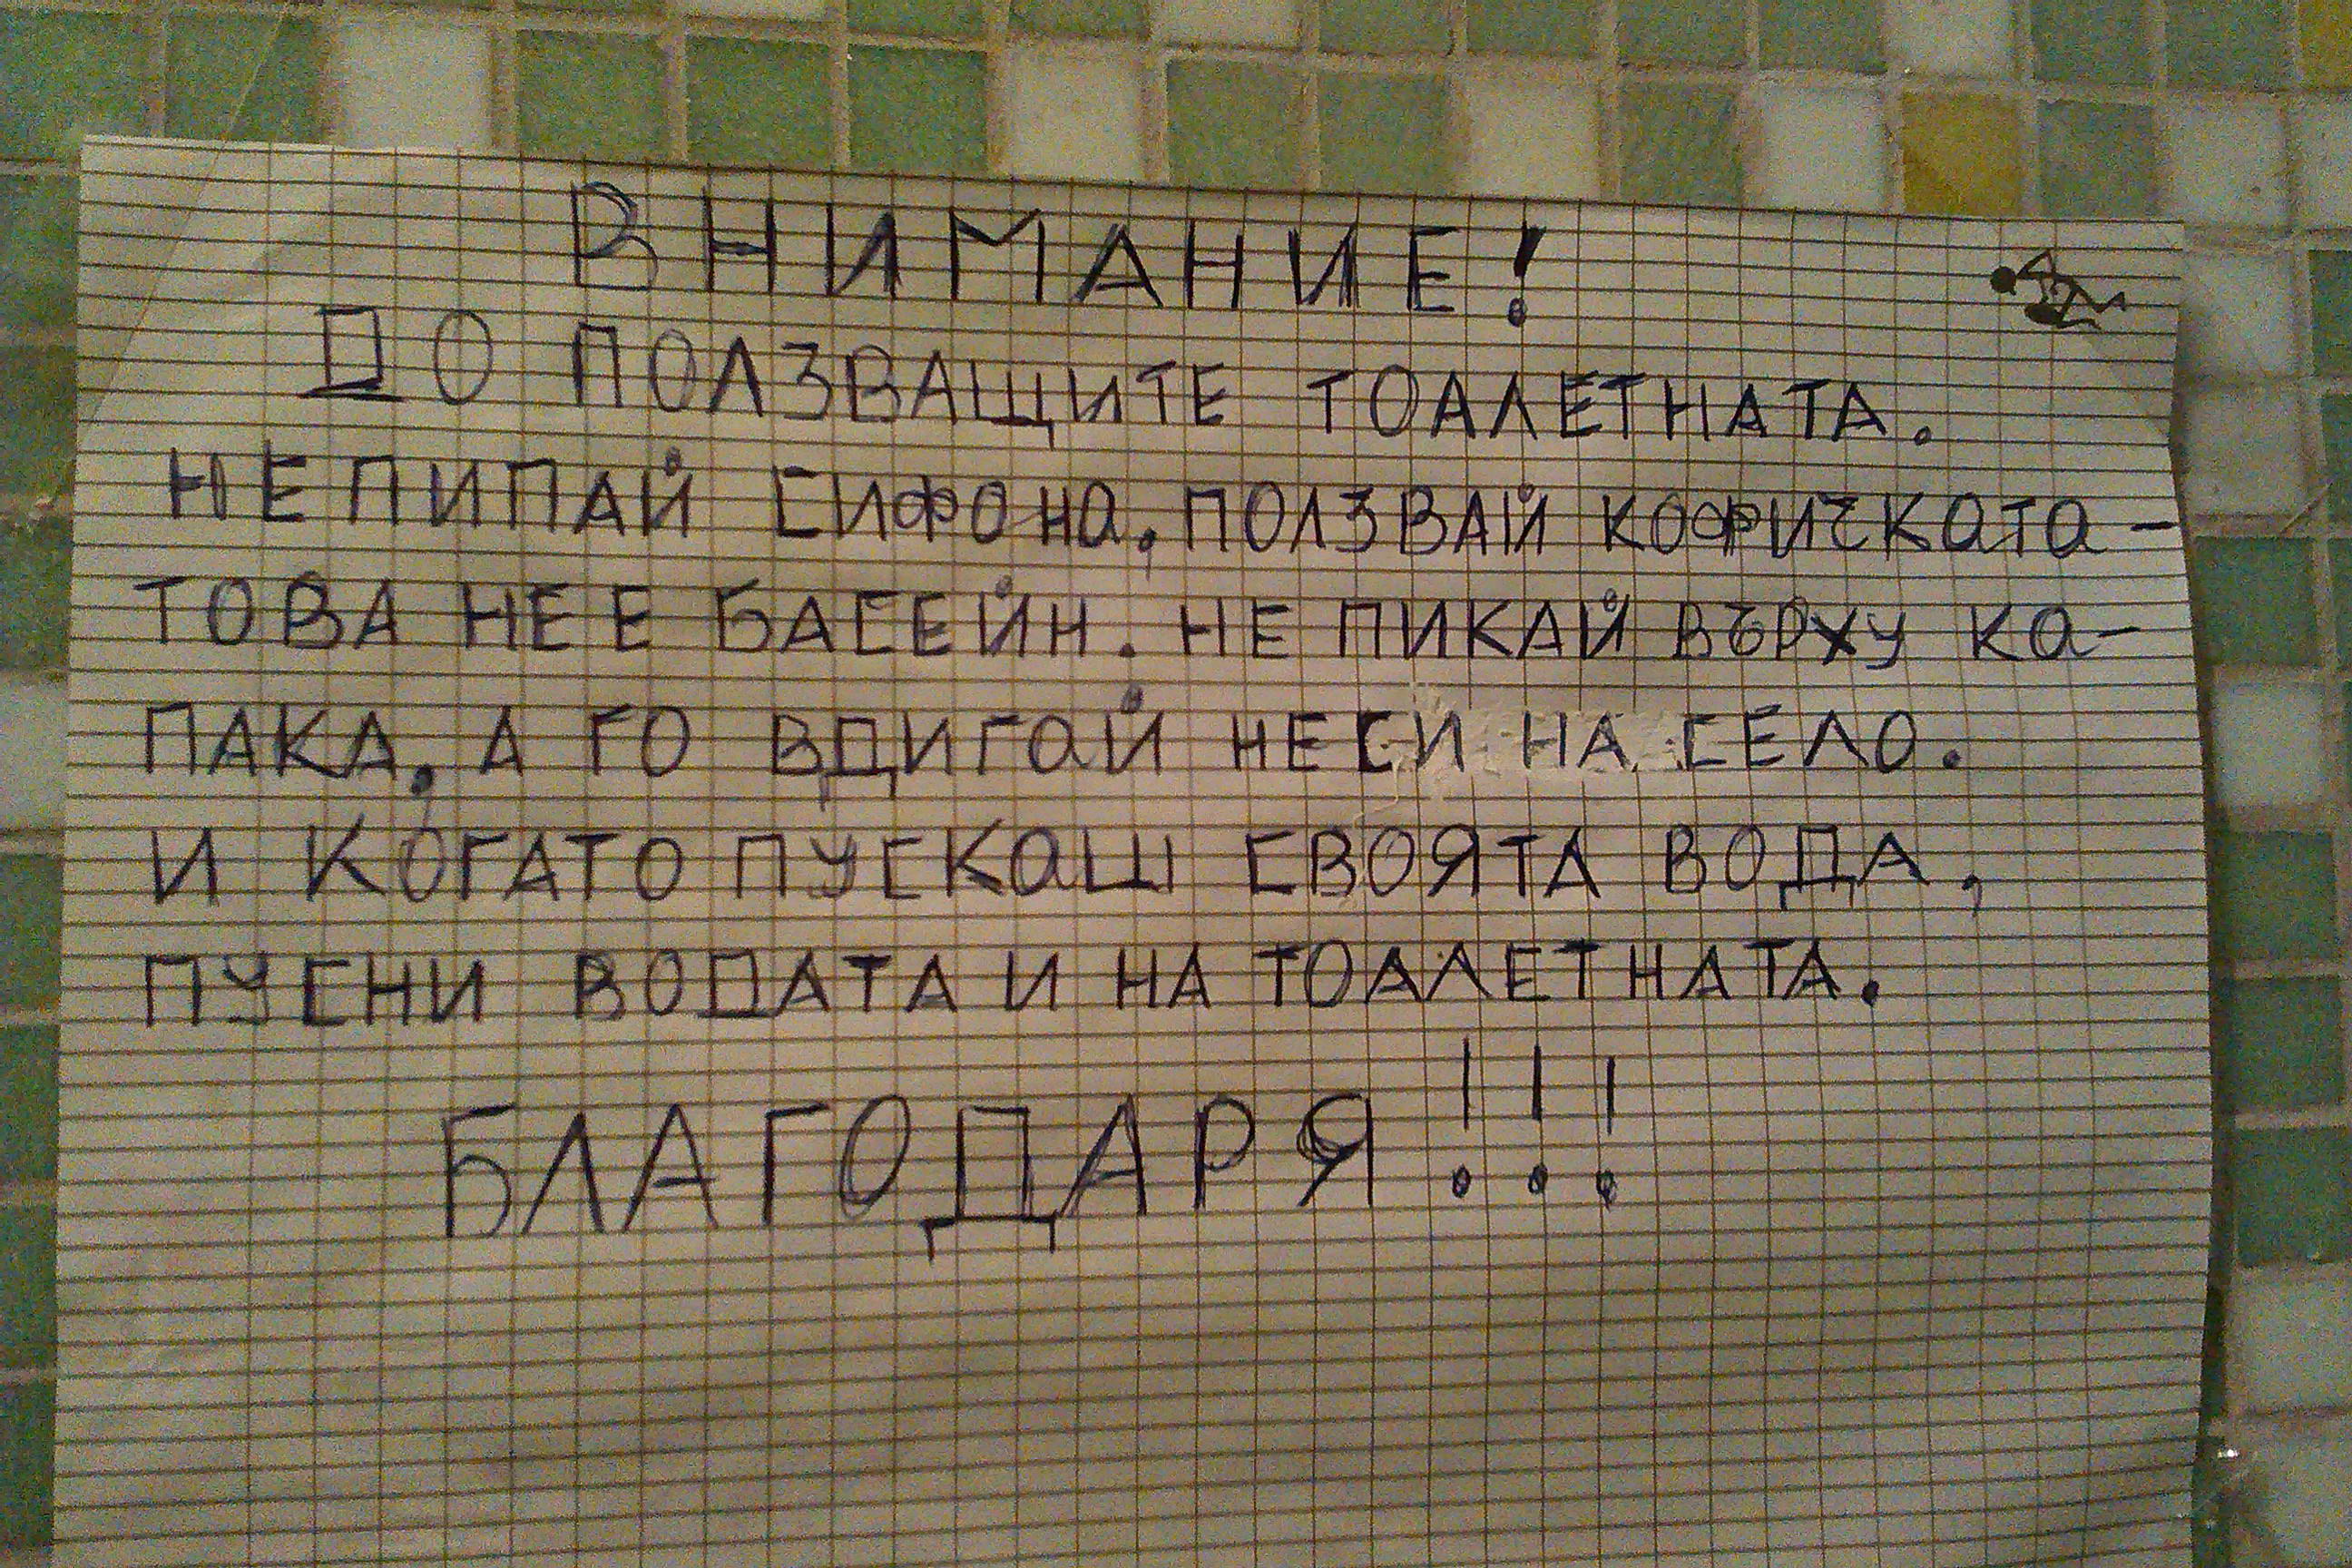 ВНИМАНИЕ!
ДО ПОЛЗВАЩИТЕ ТОАЛЕТНАТА.
НЕ ПИПАЙ СИФОНА. ПОЛЗВАЙ КОФИЧКАТА -
ТОВА НЕ Е БАСЕЙН. НЕ ПИКАЙ ВЪРХУ КА-
ПАКА, А ГО ВДИГАЙ НЕ СИ НА СЕЛО.
И КОГАТО ПУСКАШ СВОЯТА ВОДА,
ПУСНИ ВОДАТА И НА ТОАЛЕТНАТА.
БЛАГОДАРЯ!!!